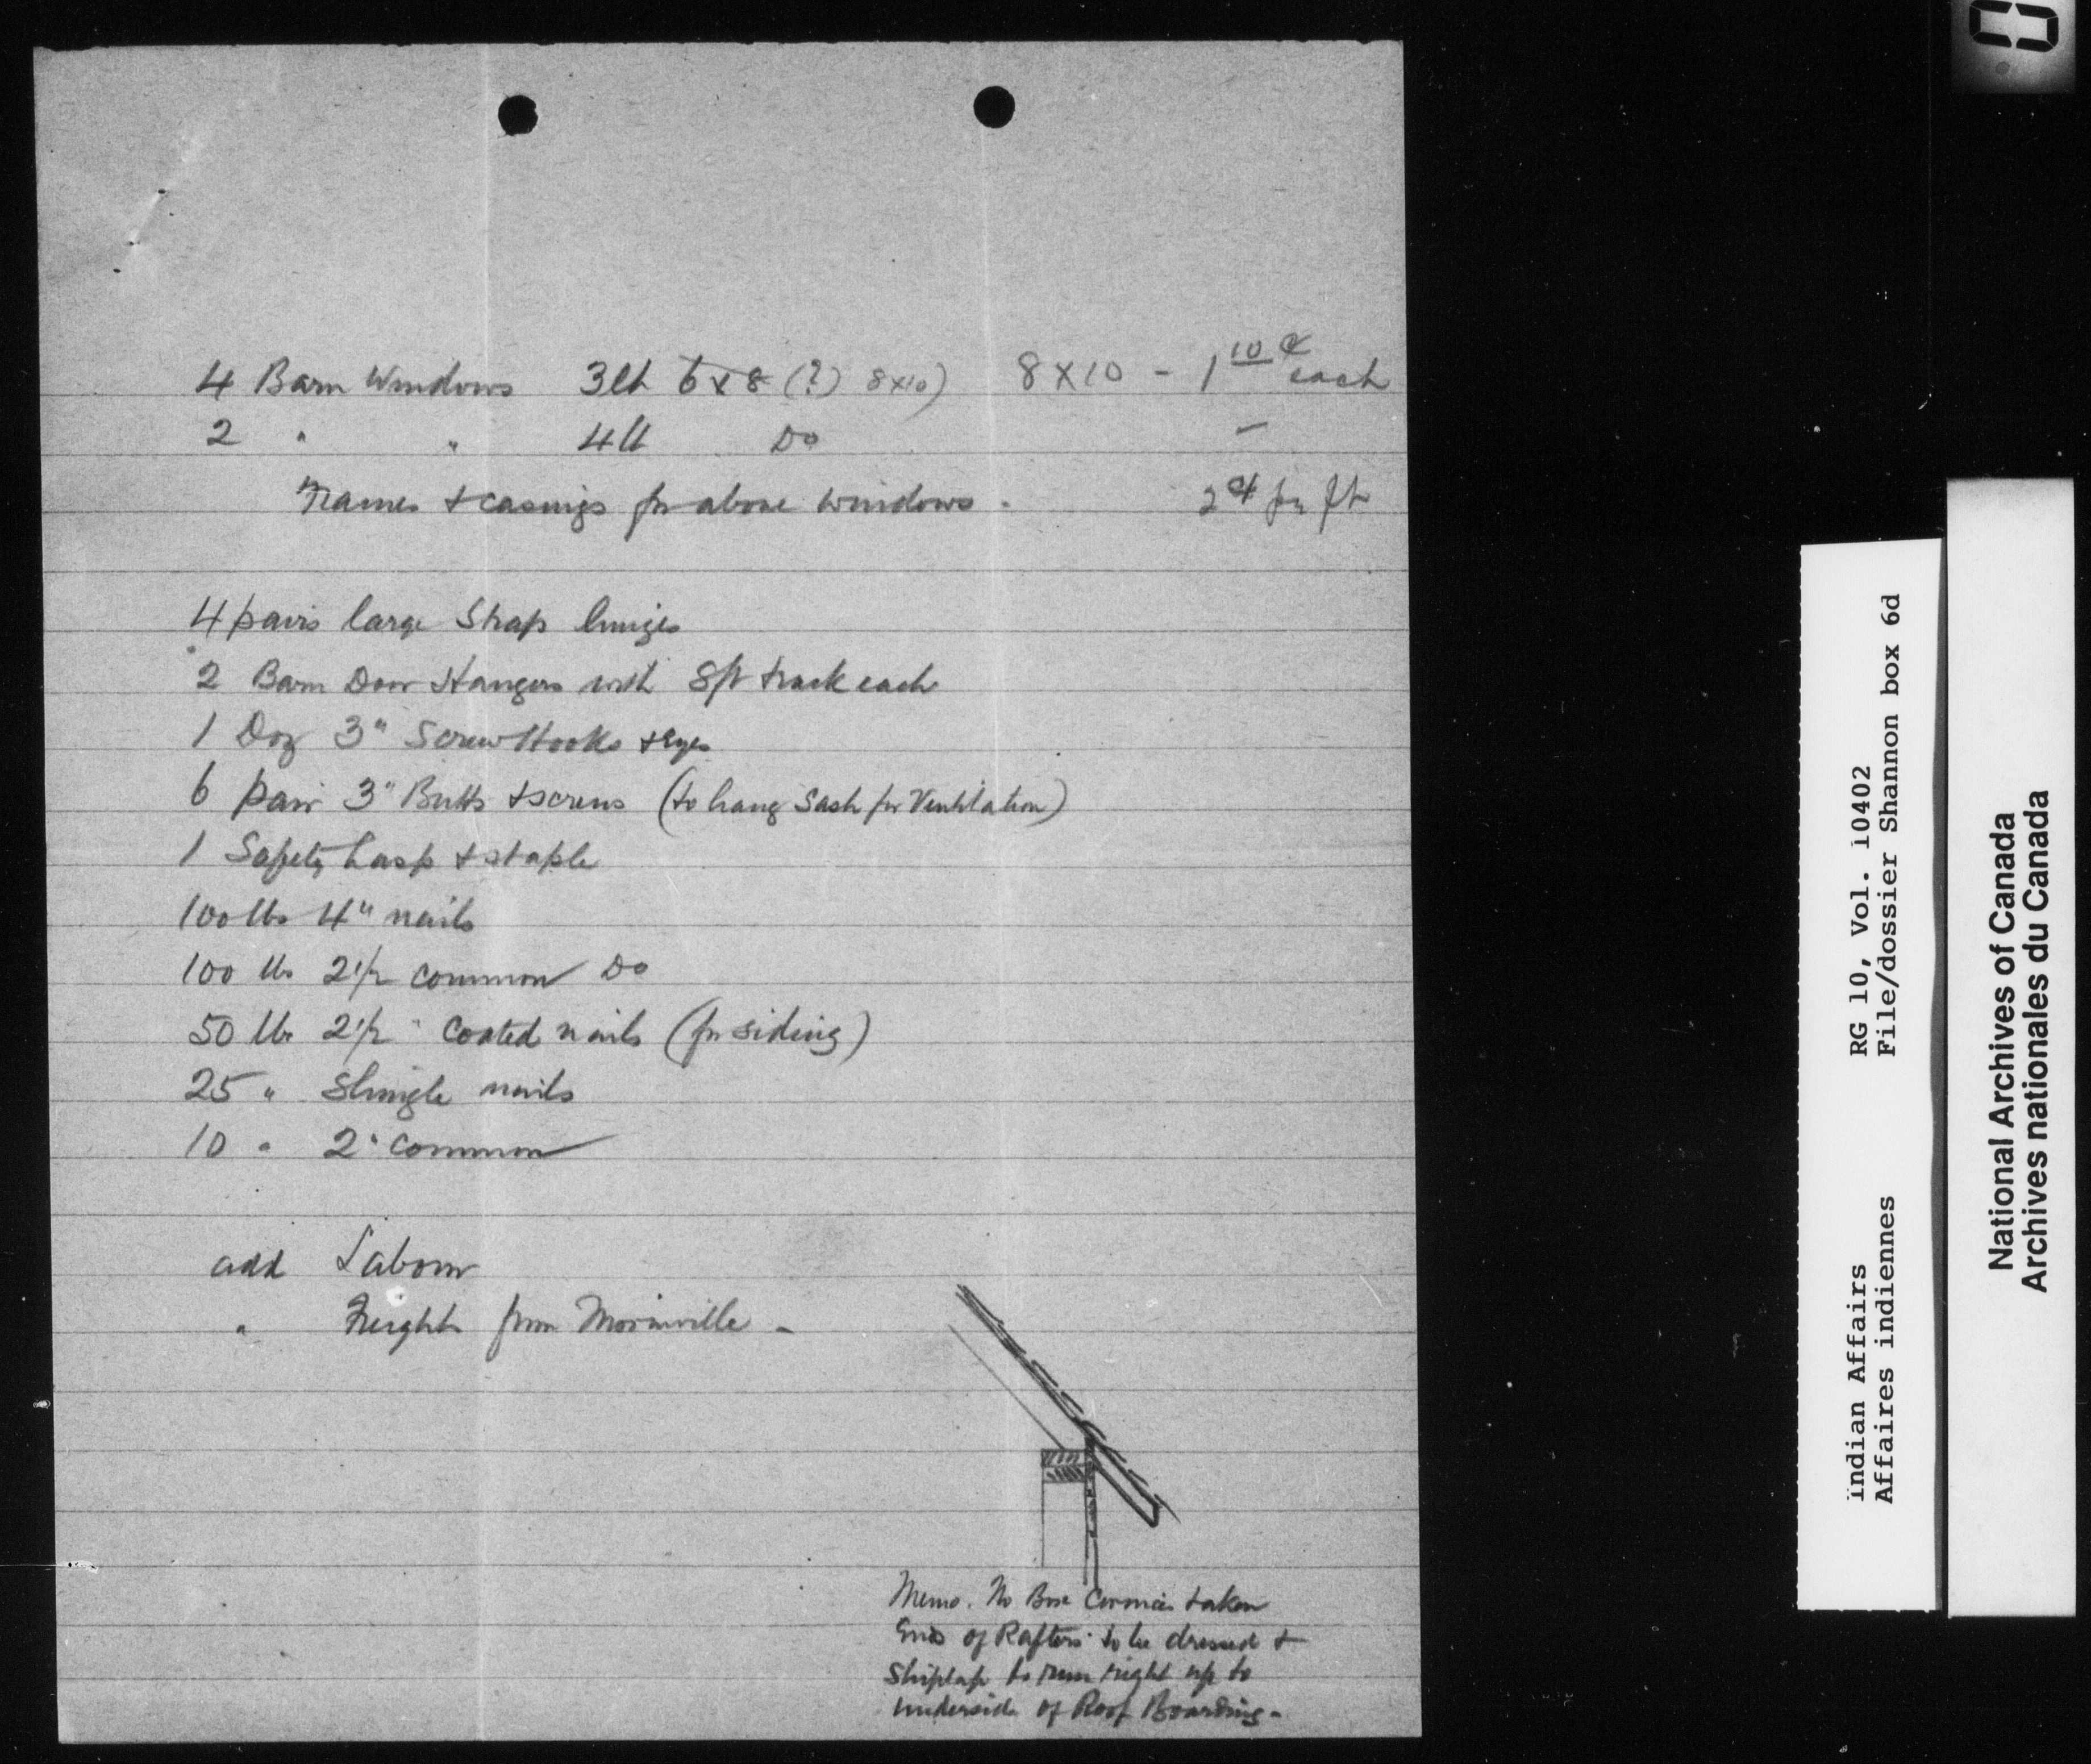 4 Barn Windows 3lt 6x8 (?) 8x10) 8x10 - 1 10 ¢ each
2 " " 4lt Do –
Frames + casings for above windows. 2¢ per ft
4 pairs large Strap hinges
2 Barn Door Hangers with 8ft track each
1 Doz 3" Screw Hooks + Eyes
6 pair 3" Butts + screws (to hang Sash for Ventilation)
1 Safety hasp + staple
100 lbs 4" nails
100 lbs 2 1/2 common Do
50 lbs 2 1/2 " coated nails (for siding)
25 " Shingle nails
10 " 2" common
add Labour
" Freight from Morinville -
Memo. No Box Cornice taken
Ends of Rafters to be dressed +
Shiplap to run right up to
underside of Roof Boarding -
Indian Affairs RG 10, Vol. 10402
Affaires indiennes File/dossier Shannon box 6d
National Archives of Canada
Archives nationales du Canada